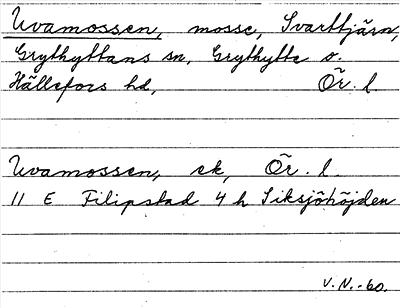 Uvamossen, mosse, Svarttjärn,
Grythyttans sn, Grythytte o.
Hällefors hd, Ör. l.
Uvamossen, ek, Ör. l.
11 E Filipstad 4 h Siksjöhöjden
V.N.-60.